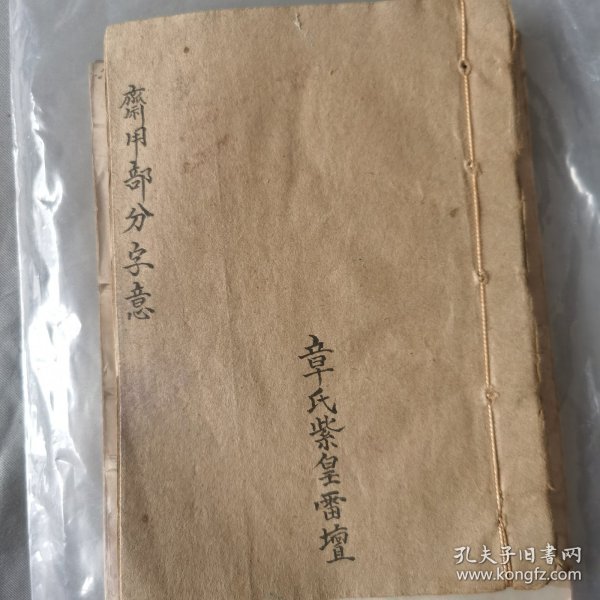 齋用部分字意
章氏紫皇雷壇
孔夫子旧书网
www.kongfz.com